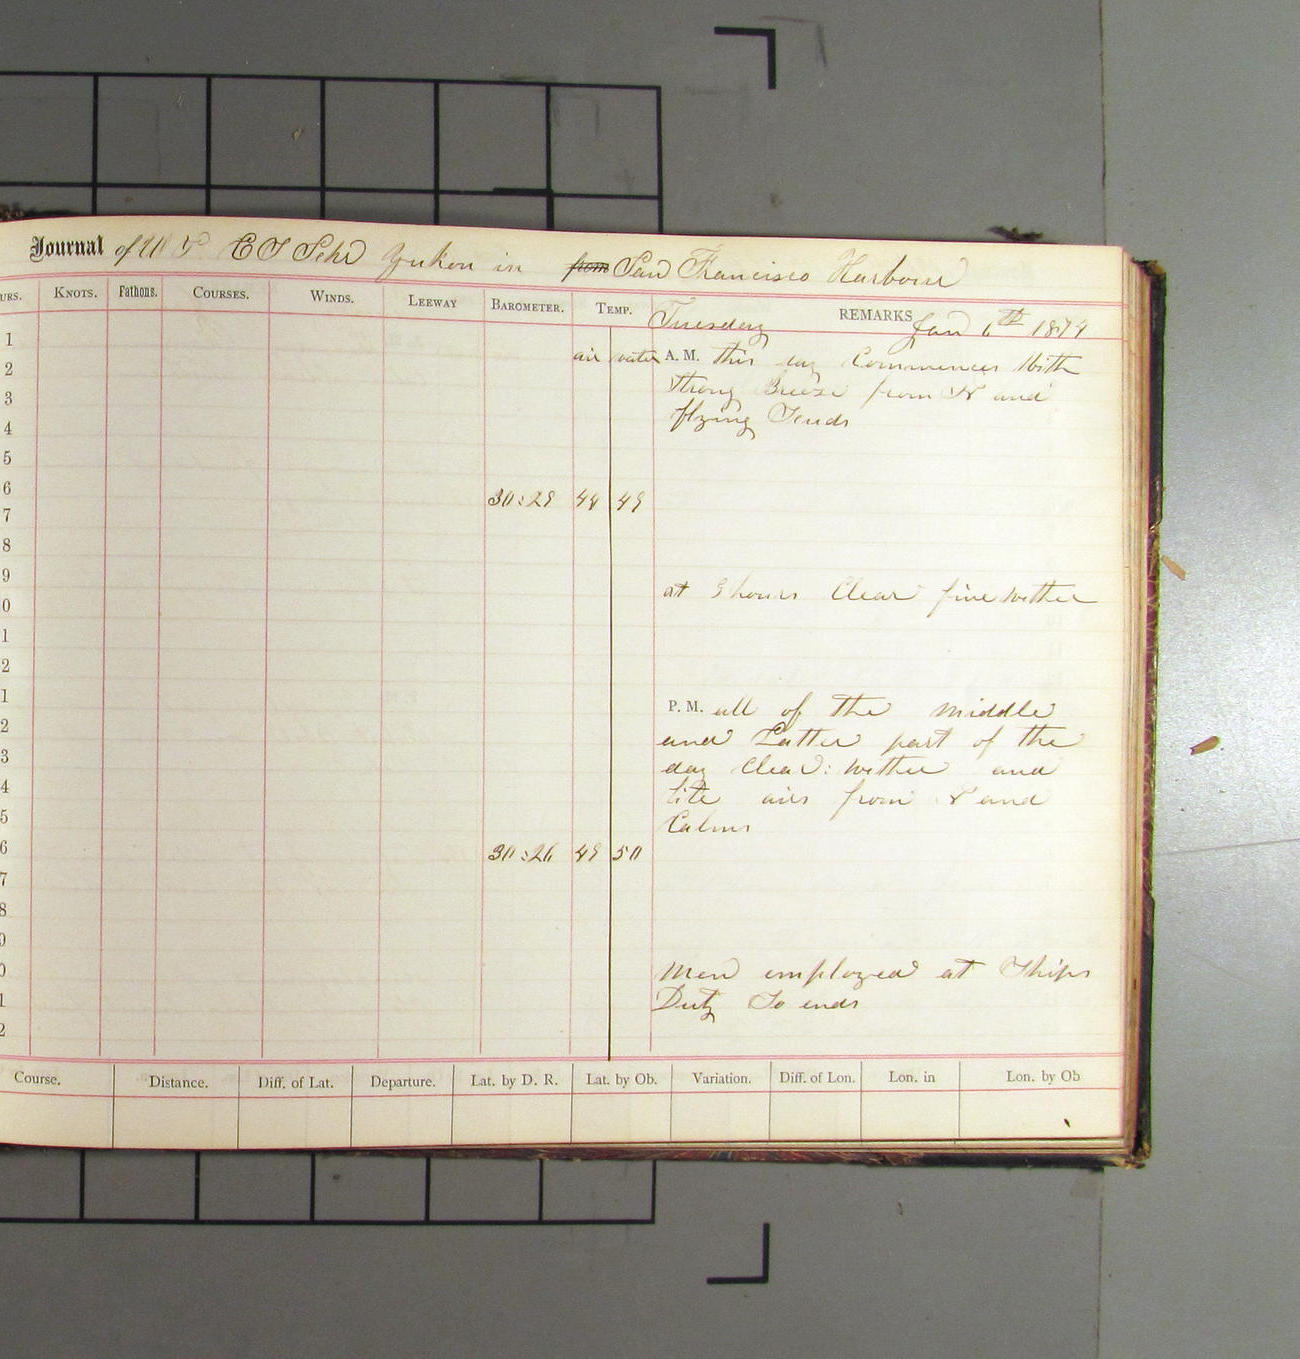 Journal of U S C S Schr Yukon in from San Francisco Harbour
URS. KNOTS. Fathoms. COURSES. WINDS. LEEWAY BAROMETER. TEMP. REMARKS
Tuesday Jan 6th 1874
1
air water A. M. this day Commences With
2
strong Breeze from N and
3
flying Scuds
4
5
6
30:28 48 49
7
8
9
at 9 hours Clear fine wether
0
1
2
1
P. M. all of the middle
2
and Latter part of the
3
day Clear: wether and
4
lite airs from N and
5
Calms
6
30:26 49 50
7
8
9
0
Men employed at Ships
1
Duty So ends
2
Course. Distance. Diff. of Lat. Departure. Lat. by D. R. Lat. by Ob. Variation. Diff. of Lon. Lon. in Lon. by Ob